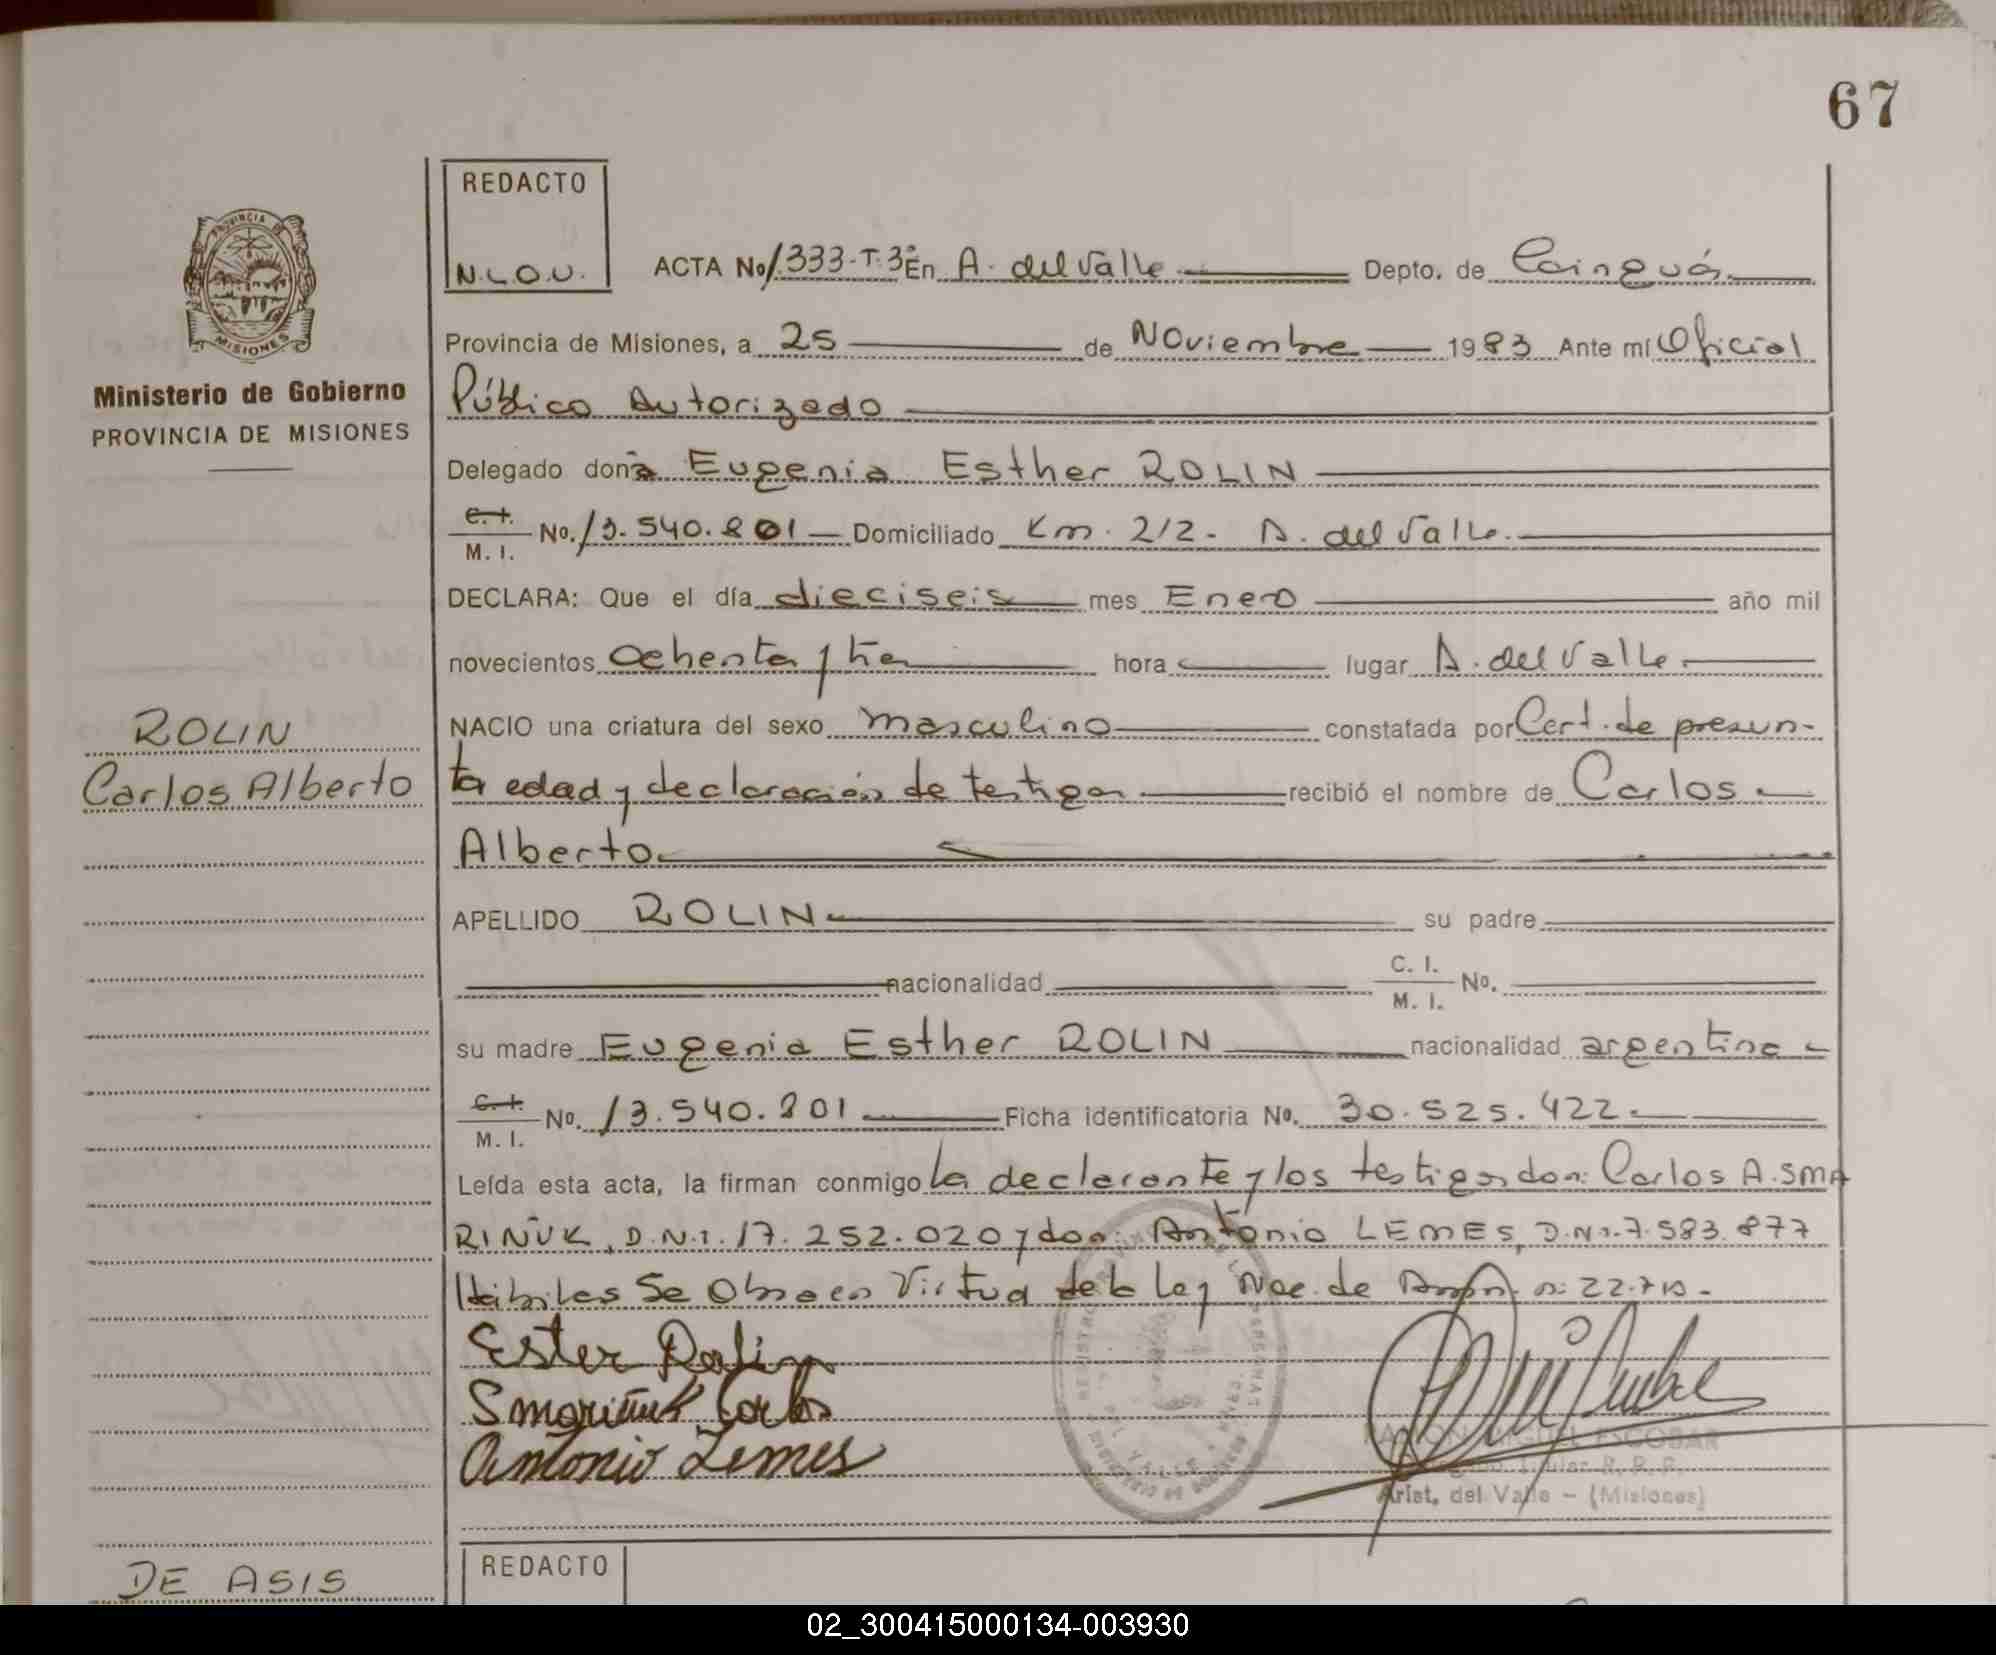 67
REDACTO
N.L.O.U.
ACTA No 1.333-T.3º En A. del Valle Depto. de Cainguás
PROVINCIA DE MISIONES
Ministerio de Gobierno
PROVINCIA DE MISIONES
Provincia de Misiones, a 25 de Noviembre 1983 Ante mí Oficial
Público Autorizado
Delegado doña Eugenia Esther ROLIN
C. I. / M. I. No. 13.540.801 Domiciliado Km. 212. A. del Valle.
DECLARA: Que el día dieciseis mes Enero año mil
novecientos ochenta y tres hora lugar A. del Valle
ROLIN
Carlos Alberto
NACIO una criatura del sexo masculino constatada por Cert. de presun-
ta edad y declaración de testigos recibió el nombre de Carlos
Alberto
APELLIDO ROLIN su padre
nacionalidad C. I. / M. I. No.
su madre Eugenia Esther ROLIN nacionalidad argentina
C. I. / M. I. No. 13.540.801 Ficha identificatoria No. 30.525.422
Leída esta acta, la firman conmigo la declarante y los testigos don: Carlos A. SMA
RIÑUK, D.N.I. 17.252.020 y don: Antonio LEMES, D.N.I. 7.583.877
Hábiles Se Obra en Virtud de la Ley Nac. de n: 22.
Ester Rolin
Smariñuk Carlos
Antonio Lemes
RAMON MIGUEL ESCOBAR
Titular R. P. P.
Arist. del Valle - (Misiones)
DE ASIS
REDACTO
02_300415000134-003930